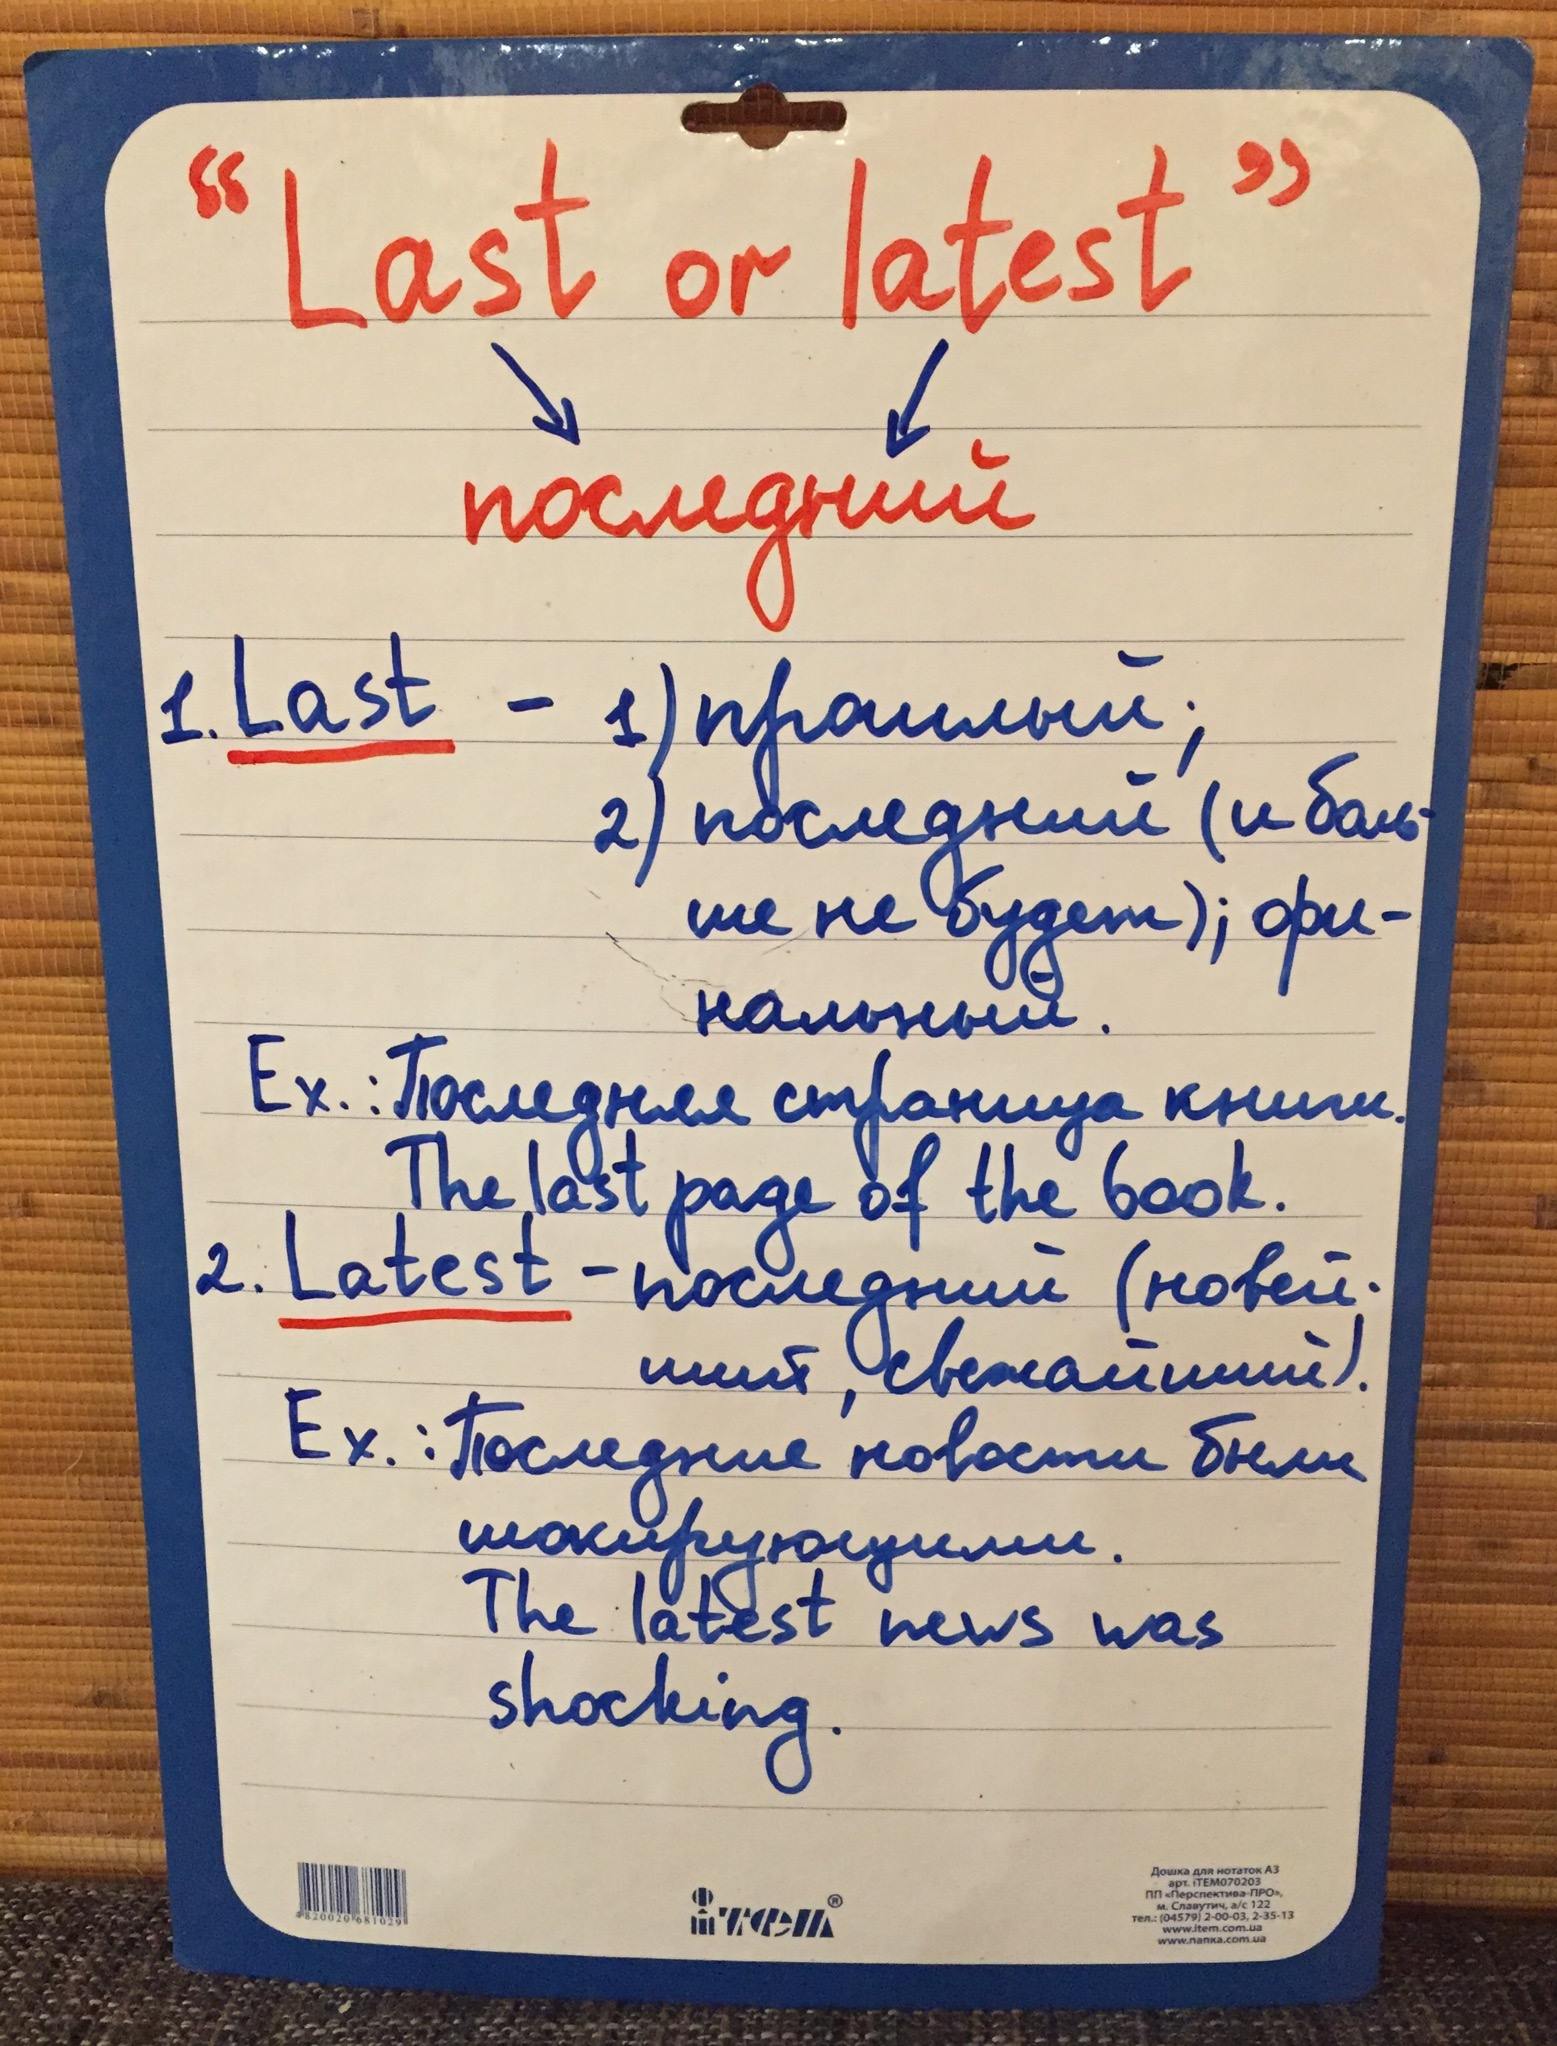 “Last or latest”
последний
1. Last - 1) прошлый;
2) последний (и боль-
ше не будет); фи-
нальный.
Ex.: Последняя страница книги.
The last page of the book.
2. Latest - последний (новей-
ший, свежайший).
Ex.: Последние новости были
шокирующими.
The latest news was
shocking.
4820020681029
iтем®
Дошка для нотаток А3
арт. iTEM070203
ПП «Перспектива-ПРО»,
м. Славутич, а/с 122
тел.: (04579) 2-00-03, 2-35-13
www.item.com.ua
www.папка.com.ua